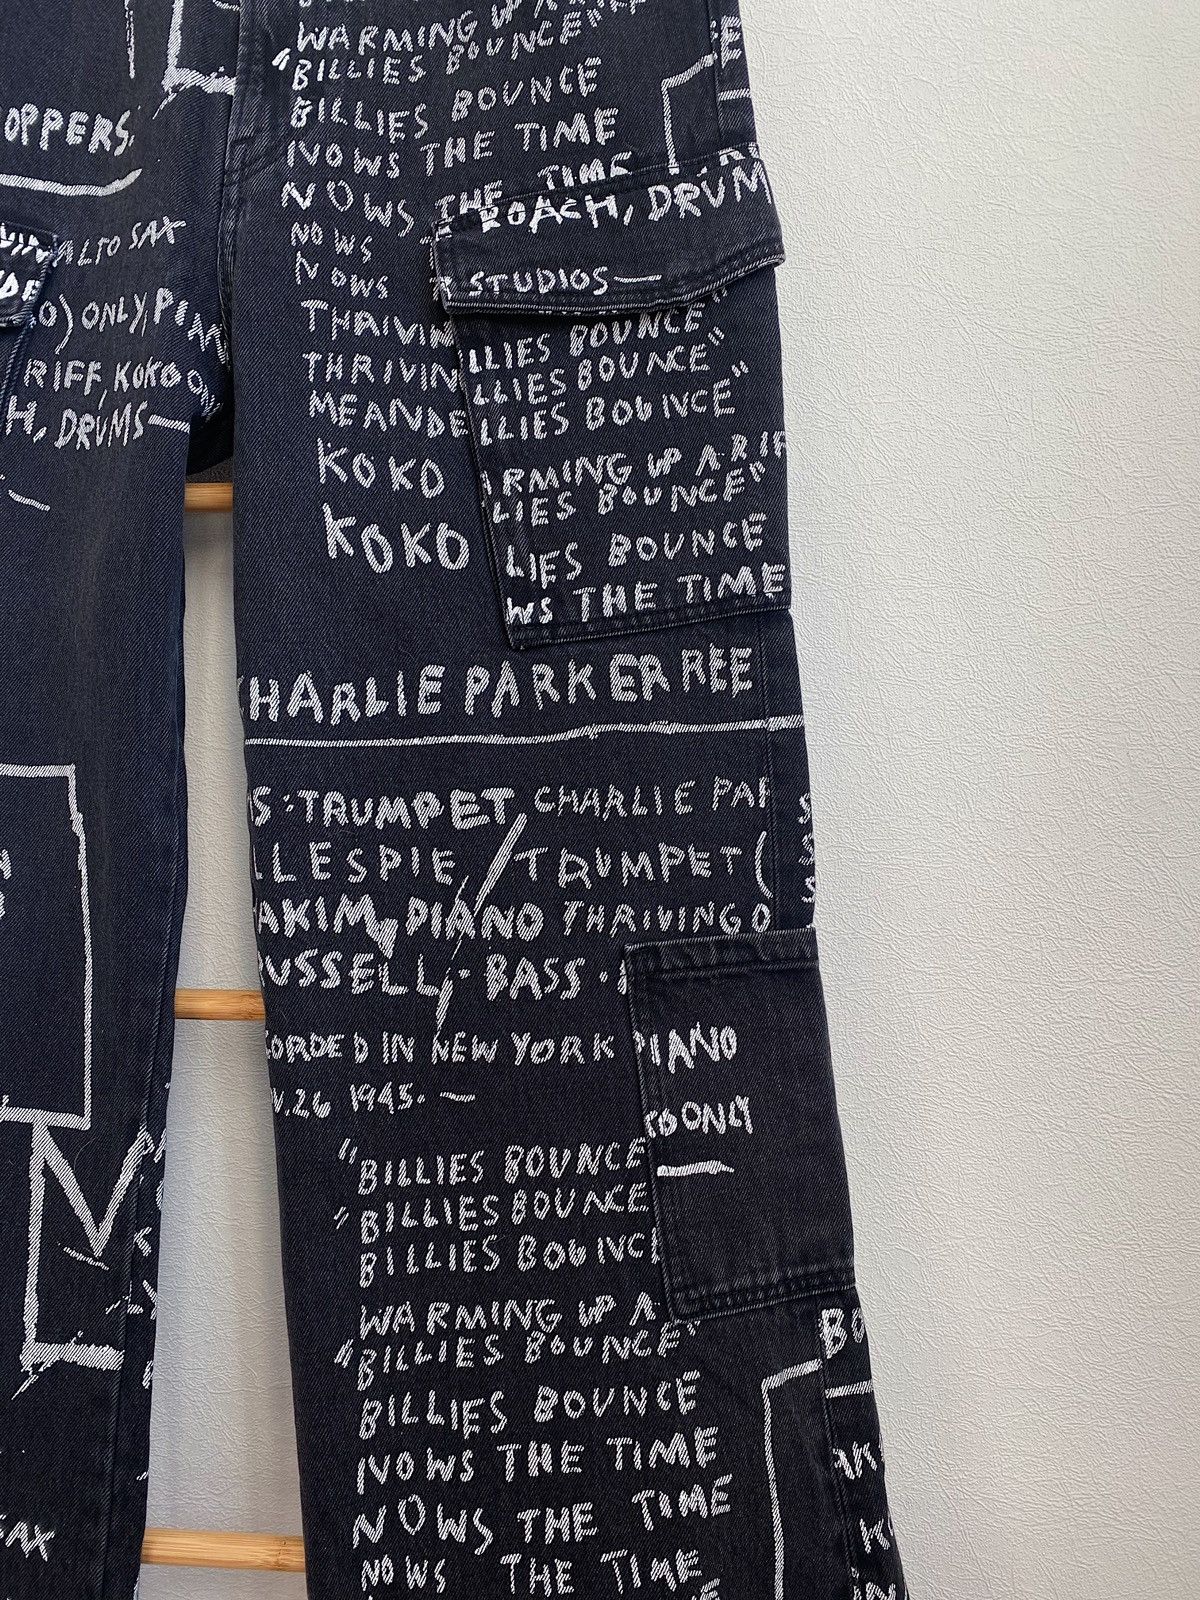 WARMING UP A RIFF
"BILLIES BOUNCE"
BILLIES BOUNCE
NOWS THE TIME
NOWS THE TIME
NOWS
NOWS
THRIVIN
THRIVIN
MEANDE
KOKO
KOKO
OPPERS.
ALTO SAX
O) ONLY, PIAN
RIFF, KOKO ON
H, DRUMS—
ROACH, DRUM
STUDIOS—
LLIES BOUNCE"
LLIES BOUNCE"
LLIES BOUNCE"
ARMING UP A RIF
LIES BOUNCE"
LIES BOUNCE
WS THE TIME
CHARLIE PARKER REE
S: TRUMPET CHARLIE PAR
LLESPIE / TRUMPET (
AKIM, PIANO THRIVING O
RUSSELL - BASS -
CORDED IN NEW YORK
V. 26 1945. —
PIANO
TO ONLY
—
"BILLIES BOUNCE
"BILLIES BOUNCE
BILLIES BOUNCE
WARMING UP A
"BILLIES BOUNCE"
BILLIES BOUNCE
NOWS THE TIME
NOWS THE TIME
NOWS THE TIME
SAX
BO